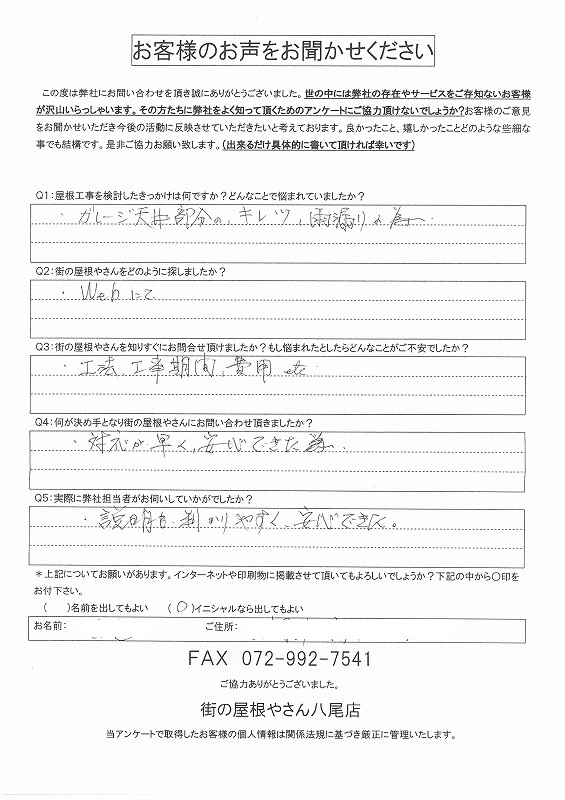 お客様のお声をお聞かせください
この度は弊社にお問い合わせを頂き誠にありがとうございました。世の中には弊社の存在やサービスをご存知ないお客様
が沢山いらっしゃいます。その方たちに弊社をよく知って頂くためのアンケートにご協力頂けないでしょうか?お客様のご意見
をお聞かせいただき今後の活動に反映させていただきたいと考えております。良かったこと、嬉しかったことどのような些細な
事でも結構です。是非ご協力お願い致します。(出来るだけ具体的に書いて頂ければ幸いです)
Q1:屋根工事を検討したきっかけは何ですか?どんなことで悩まれていましたか?
・ガレージ天井部分の、キレツ、雨漏りの為
Q2:街の屋根やさんをどのように探しましたか?
・Webにて
Q3:街の屋根やさんを知りすぐにお問合せ頂けましたか?もし悩まれたとしたらどんなことがご不安でしたか?
・工法、工事期間、費用 etc
Q4:何が決め手となり街の屋根やさんにお問い合わせ頂きましたか?
・対応が早く、安心できた為
Q5:実際に弊社担当者がお伺いしていかがでしたか?
・説明も判りやすく、安心できた。
*上記についてお願いがあります。インターネットや印刷物に掲載させて頂いてもよろしいでしょうか?下記の中から〇印を
お付下さい。
( )名前を出してもよい (〇)イニシャルなら出してもよい
お名前: ご住所:
FAX 072-992-7541
ご協力ありがとうございました。
街の屋根やさん八尾店
当アンケートで取得したお客様の個人情報は関係法規に基づき厳正に管理いたします。